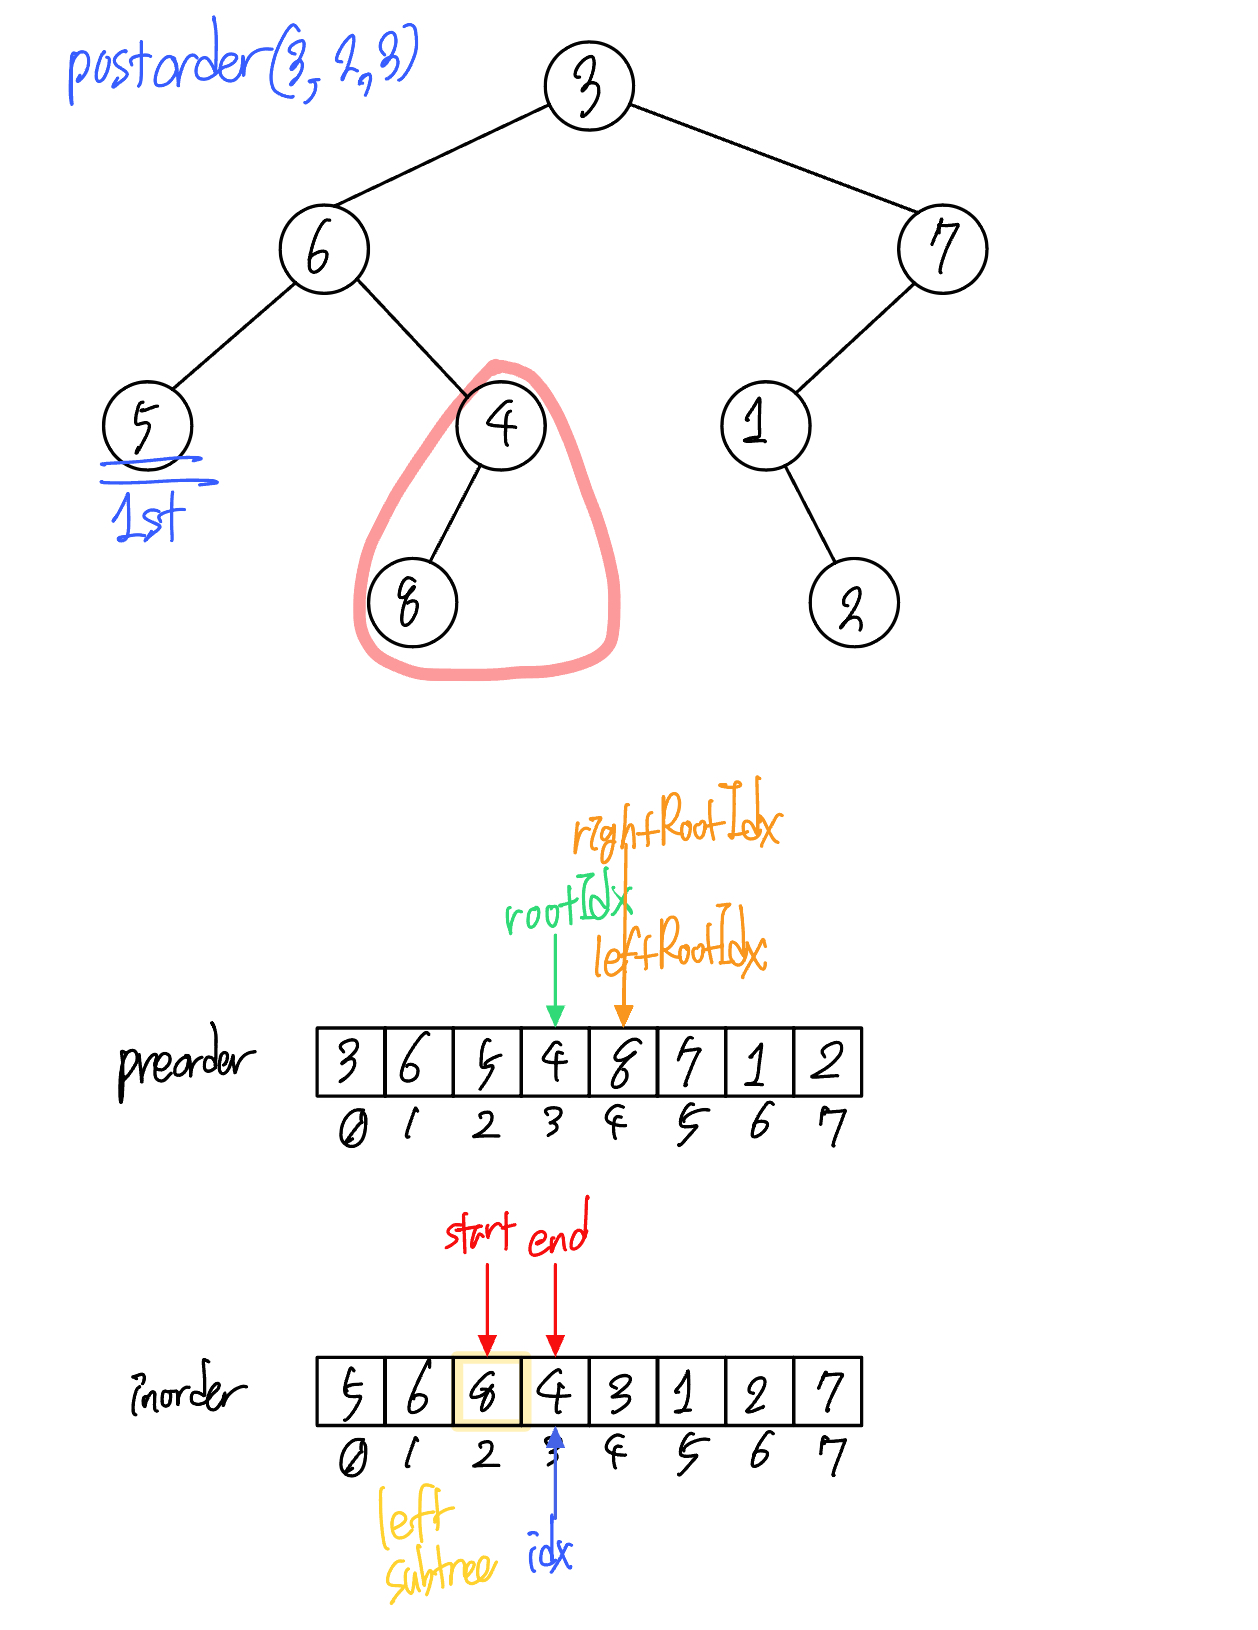 postorder(3, 2, 3)
3
6 7
5 4 1
1st
8 2
rightRootIdx
rootIdx
leftRootIdx
preorder 3 6 5 4 8 7 1 2
0 1 2 3 4 5 6 7
start end
inorder 5 6 8 4 3 1 2 7
0 1 2 3 4 5 6 7
left
subtree idx